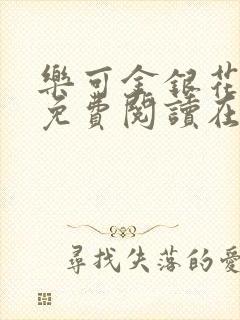 樂可金銀花
免費閱讀在
尋找失落的愛